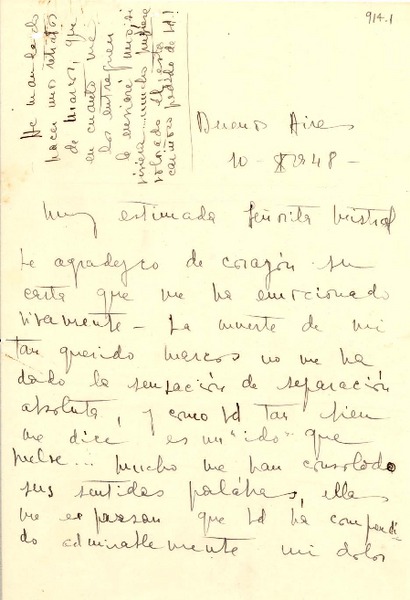 914.1
He mandado
hacer unos retratos
de Marcos, que
en cuanto me
los entreguen
le enviaré uno, si
cariñoso pedido de Ud!
Buenos Aires
10 - 1948 -
Muy estimada Señorita Mistral
Le agradezco de corazón su
carta que me ha emocionado
vivamente - La muerte de mi
tan querido Marcos no me ha
dado la sensación de separación
absoluta, y como Ud tan bien
me dice es un "ido" que
vuelve... Mucho me han consolado
sus sentidas palabras, ellas
me expresan que Ud ha compendi
do admirablemente mi dolor